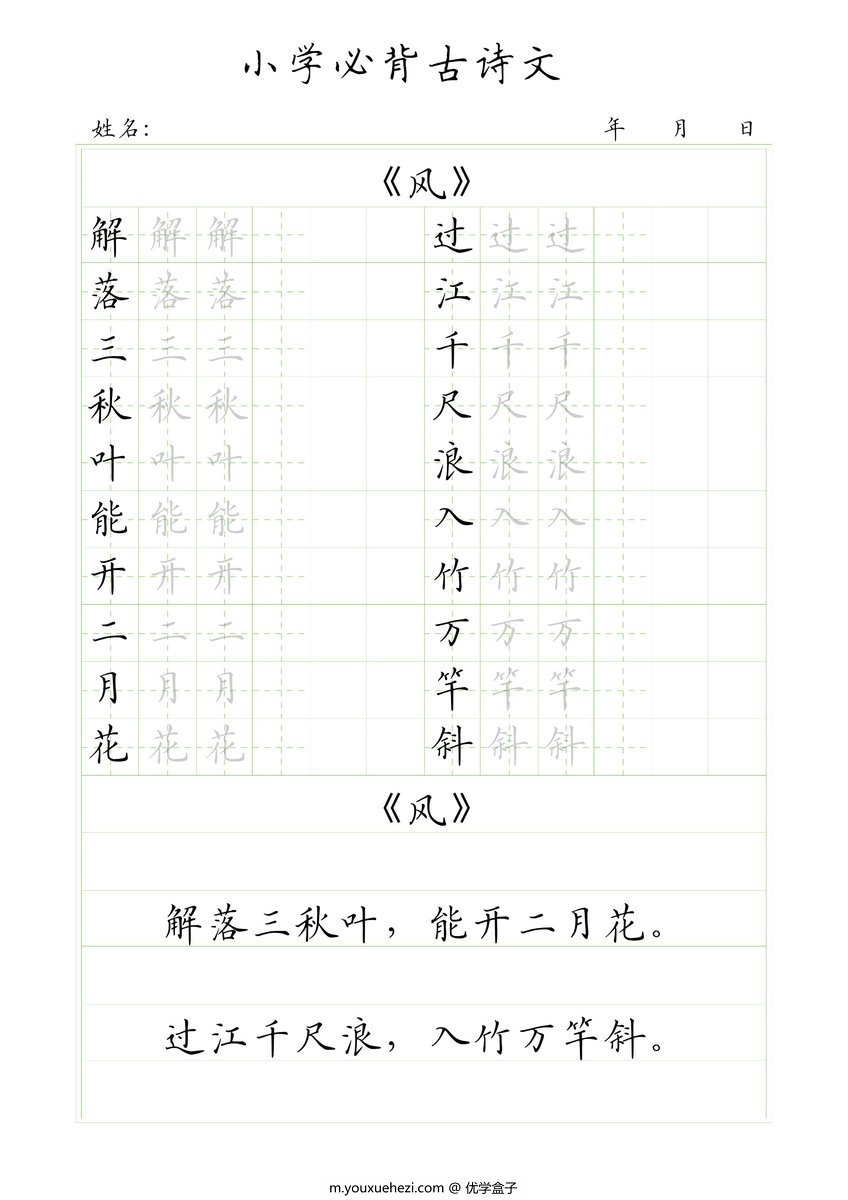 小学必背古诗文
姓名： 年 月 日
《风》
解 解 解 过 过 过
落 落 落 江 江 江
三 三 三 千 千 千
秋 秋 秋 尺 尺 尺
叶 叶 叶 浪 浪 浪
能 能 能 入 入 入
开 开 开 竹 竹 竹
二 二 二 万 万 万
月 月 月 竿 竿 竿
花 花 花 斜 斜 斜
《风》
解落三秋叶，能开二月花。
过江千尺浪，入竹万竿斜。
m.youxuehezi.com @ 优学盒子